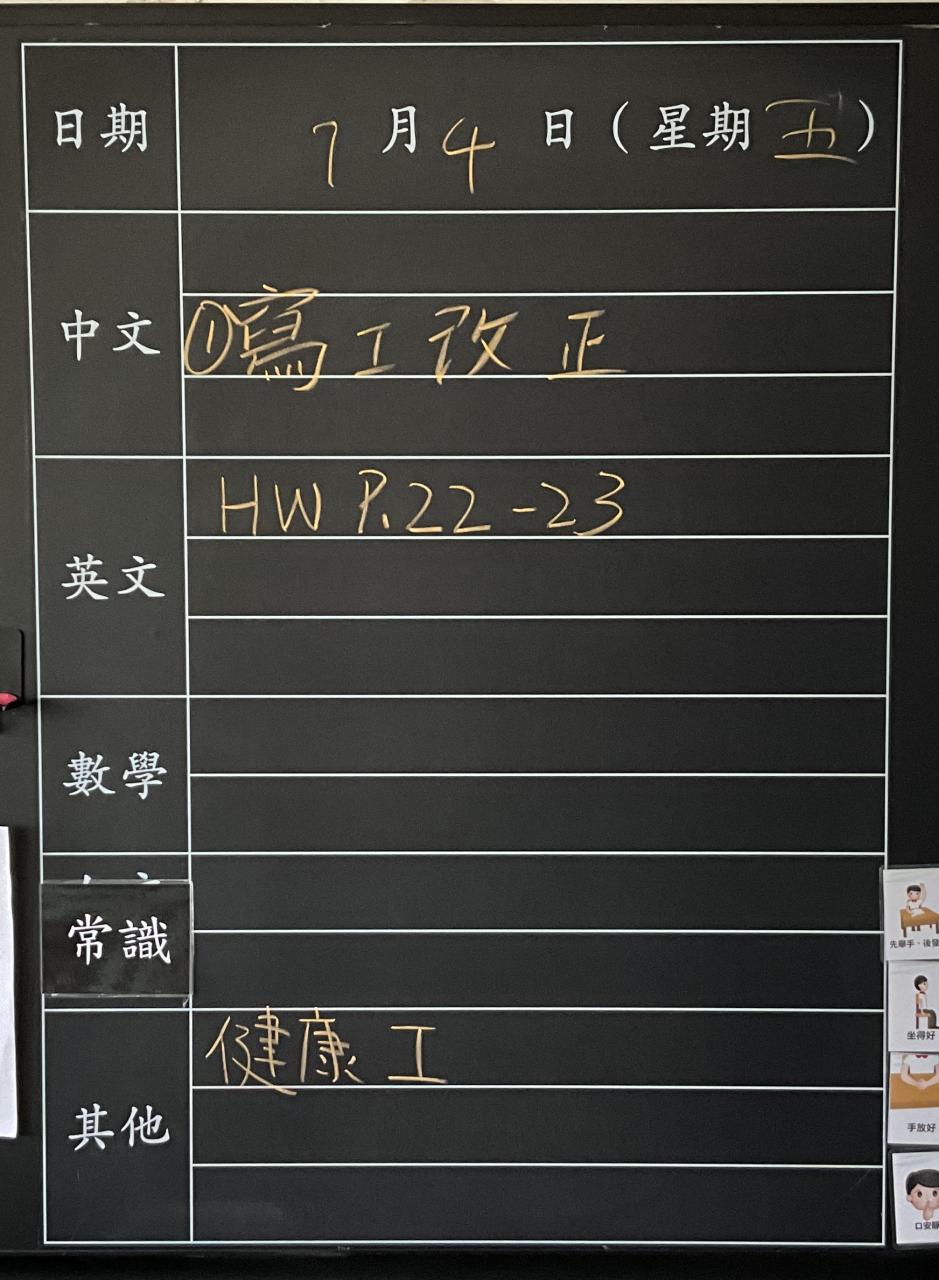 日期 7月4日(星期五)
中文
①寫工改正
英文
HW P.22-23
數學
常識
其他
健康工
先舉手、後發
坐得好
手放好
口安靜